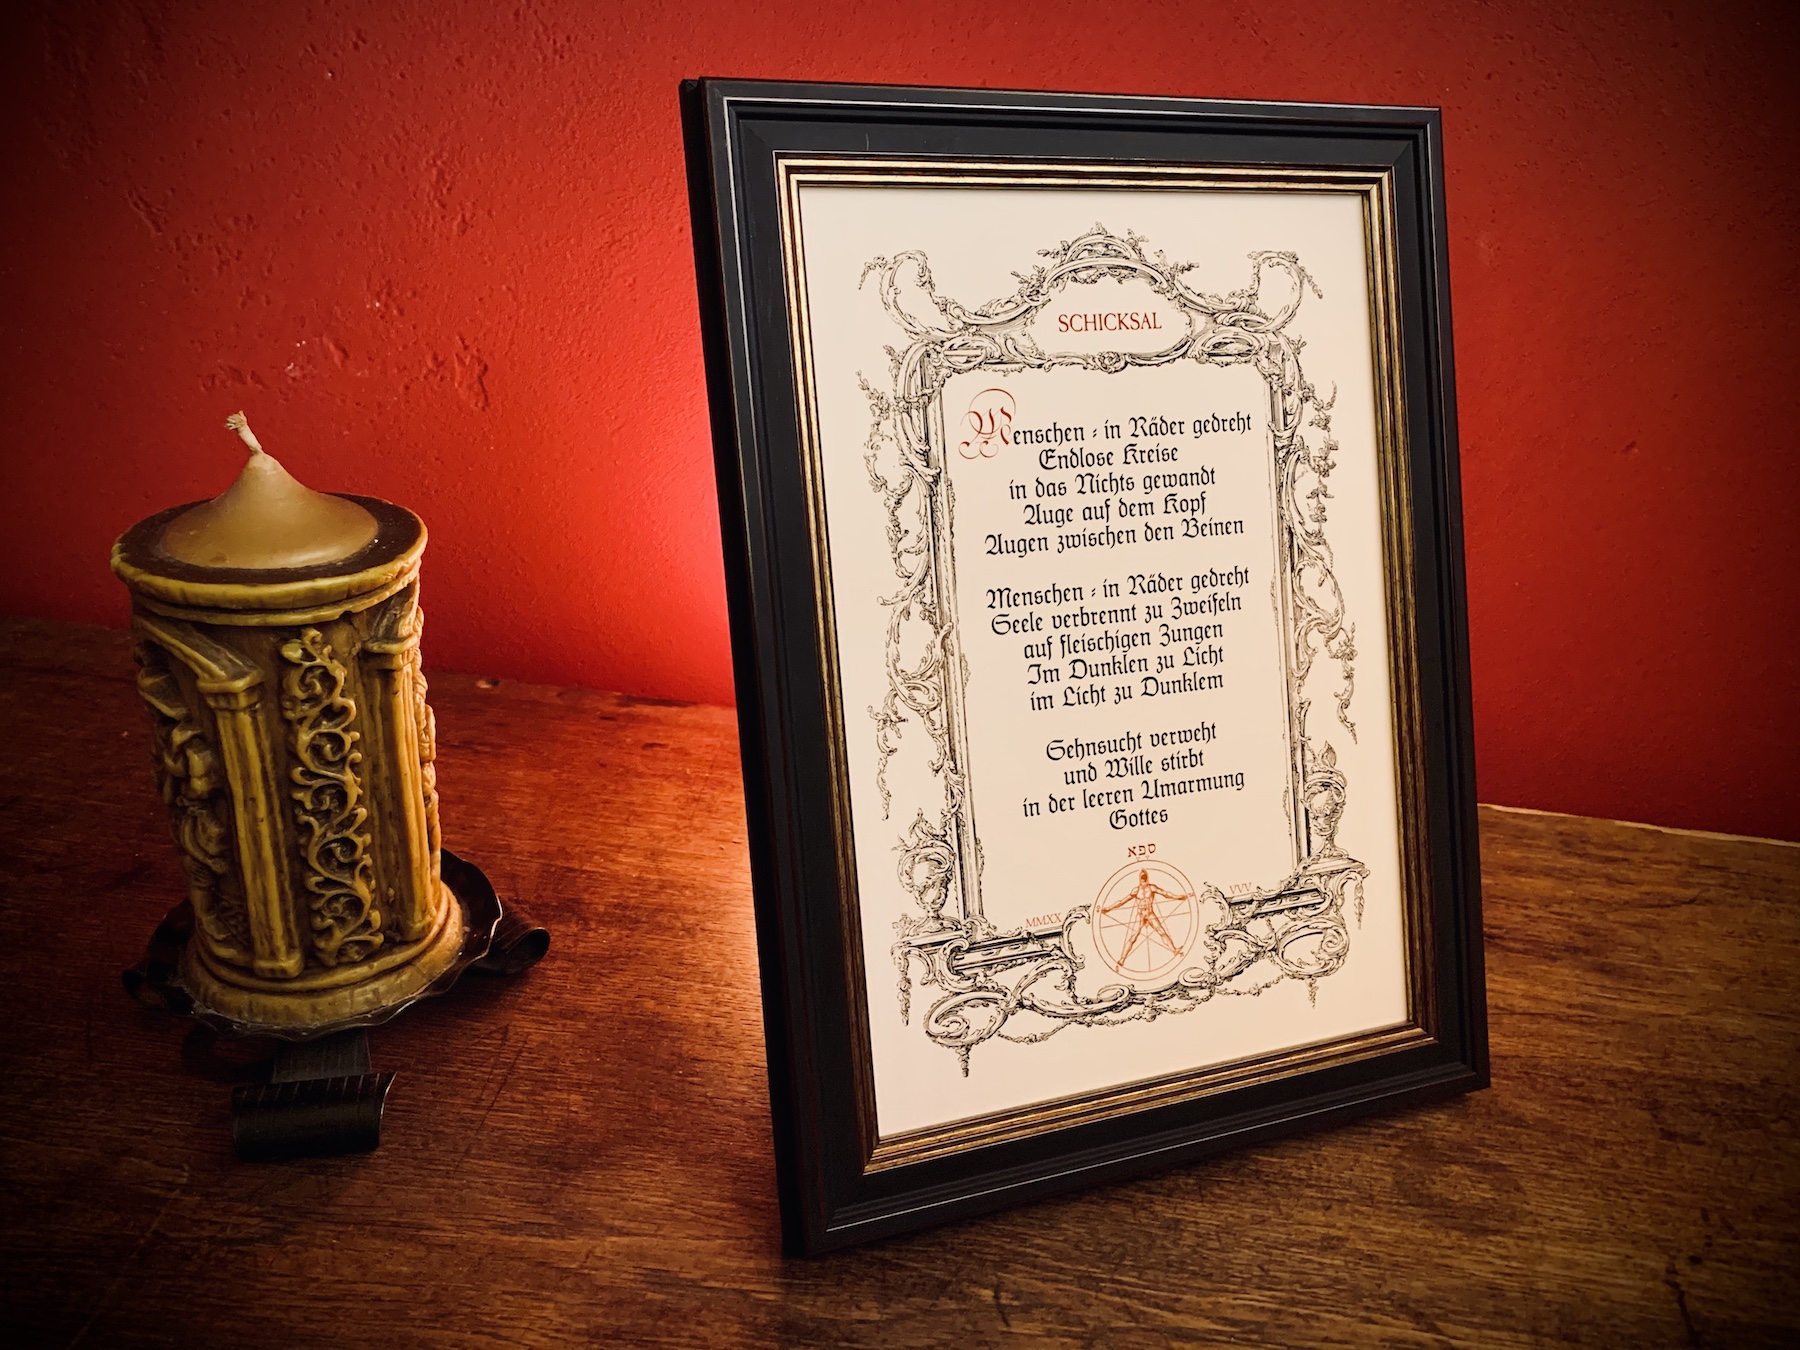 SCHICKSAL
Menschen - in Räder gedreht
Endlose Kreise
in das Nichts gewandt
Auge auf dem Kopf
Augen zwischen den Beinen
Menschen - in Räder gedreht
Seele verbrennt zu Zweifeln
auf fleischigen Zungen
Im Dunklen zu Licht
im Licht zu Dunklem
Sehnsucht verweht
und Wille stirbt
in der leeren Umarmung
Gottes
ספא
MMXX VVV